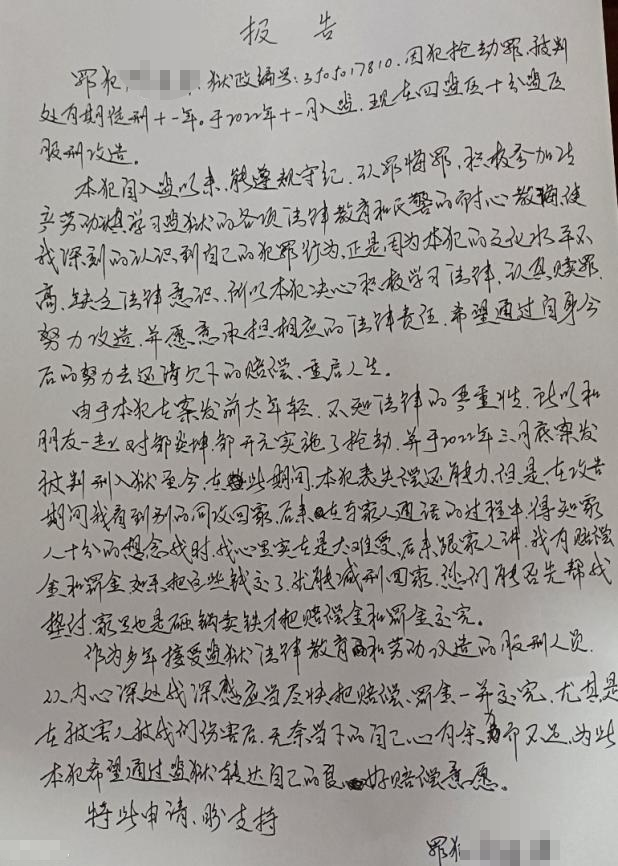 报 告
罪犯 狱政编号:3505017810.因犯抢劫罪,被判
处有期徒刑十一年。于2022年十一月入监.现在四监区十分监区
服刑改造。
本犯自入监以来,能遵规守纪.认罪悔罪,积极参加生
产劳动 学习监狱的各项法律教育和民警的耐心教悔,使
我深刻的认识到自己的犯罪行为,正是因为本犯的文化水平不
高,缺乏法律意识.所以本犯决心积极学习法律,认真赎罪.
努力改造,并愿意承担相应的法律责任,希望通过自身今
后的努力去还清欠下的赔偿,重启人生。
由于本犯在案发前太年轻,不知法律的严重性,所以和
朋友一起对 实施了抢劫.并于2022年三月底案发
被判刑入狱至今,在此期间,本犯丧失偿还能力,但是,在改造
期间我看到别的同改回家,后来在与家人通话的过程中,得知家
人十分的想念我时,我心里实在是太难受,后来跟家人讲,我有赔偿
金和罚金如果把这些钱交了,就能减刑回家,你们能否先帮我
垫付,家里也是砸锅卖铁才把赔偿金和罚金交完。
作为多年接受监狱法律教育和劳动改造的服刑人员.
内心深处我深感应当尽快把赔偿、罚金一并交完,尤其是
在被害人被我们伤害后,无奈当下的自己心有余力而不足,为此
本犯希望通过监狱转达自己的良好赔偿意愿。
特此申请、盼支持
罪犯